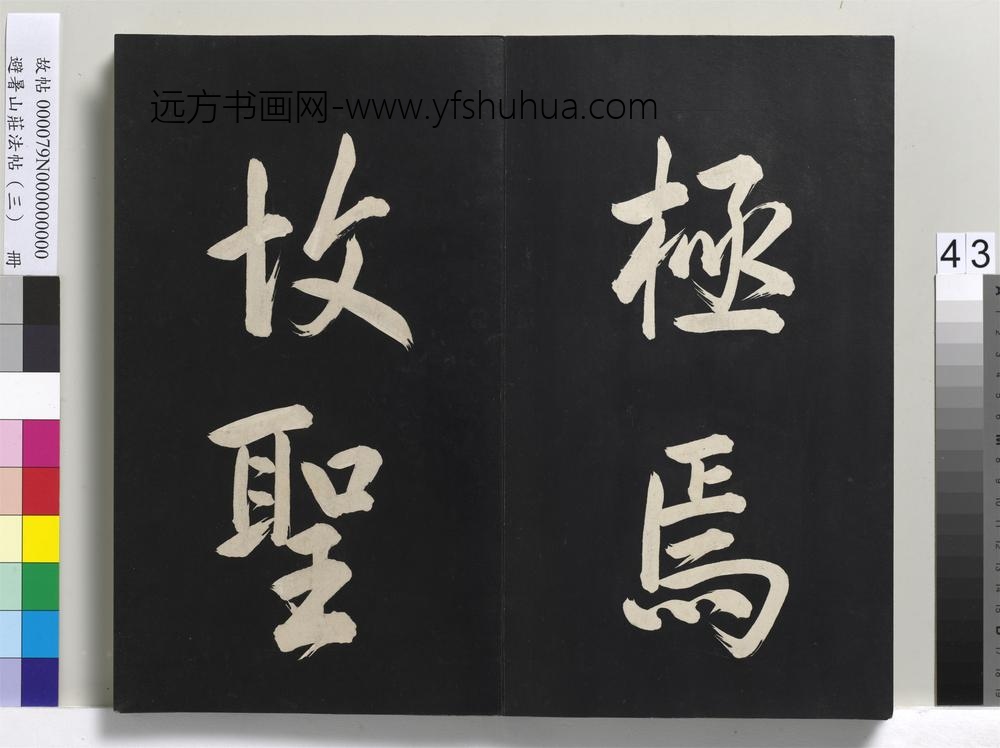 远方书画网-www.yfshuhua.com
極焉
故聖
故帖 000079N000000000
避暑山莊法帖（三） 冊
43